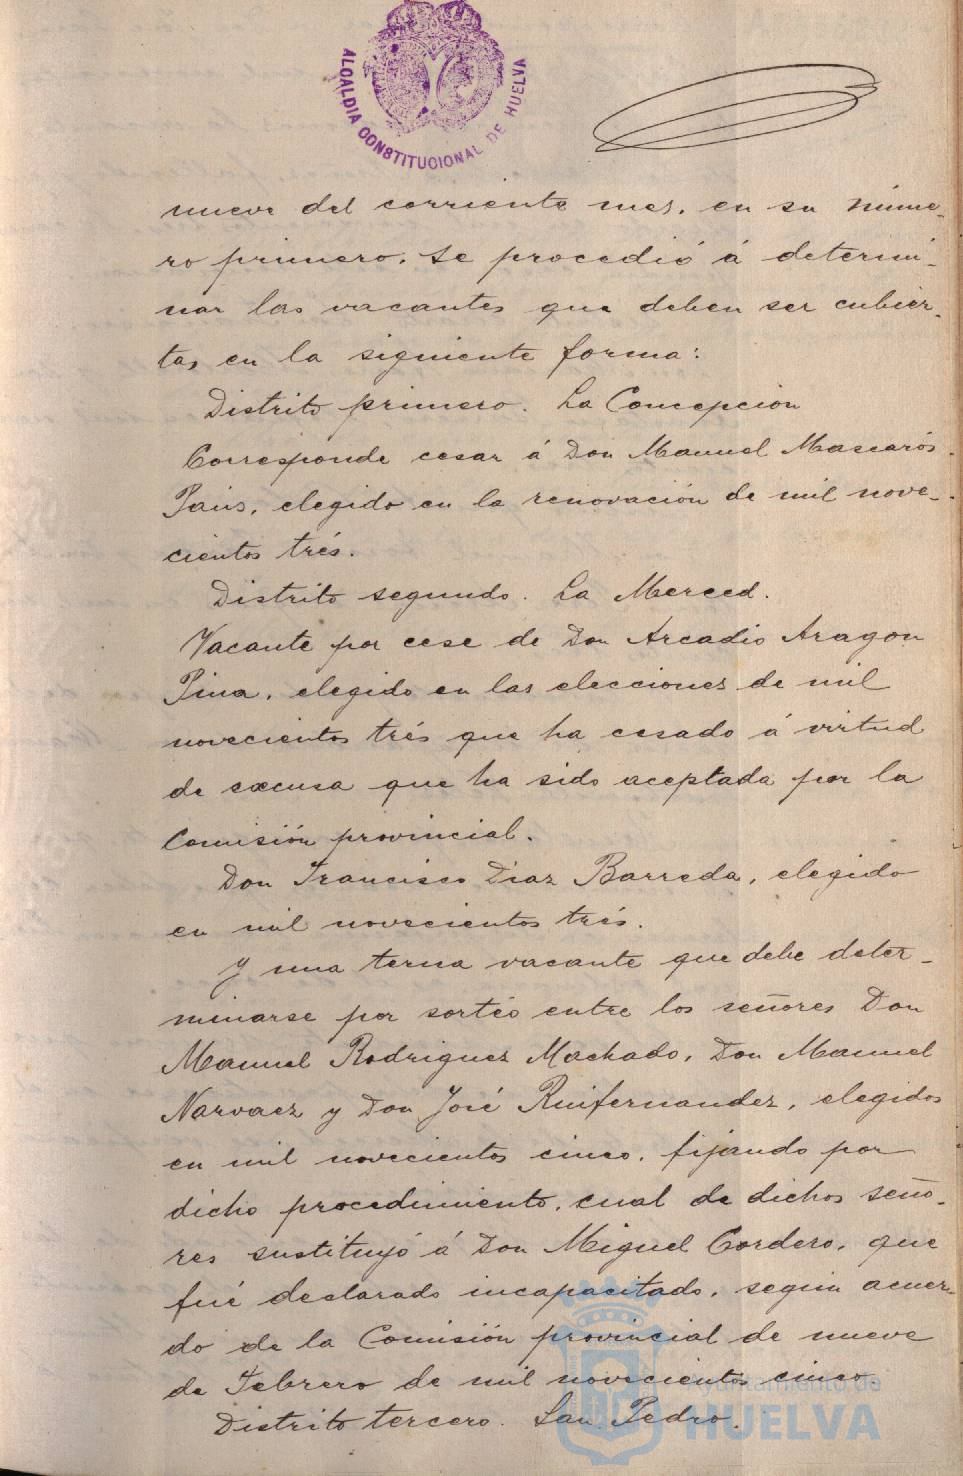 ALCALDIA CONSTITUCIONAL DE HUELVA
nueve del corriente mes, en su núme-
ro primero, se procedió á determi-
nar las vacantes que deben ser cubier-
tas en la siguiente forma:
Distrito primero. La Concepción
Corresponde cesar á Don Manuel Mascarós
Pais, elegido en la renovación de mil nove-
cientos trés.
Distrito segundo. La Merced.
Vacante por cese de Don Arcadio Aragon
Pina, elegido en las elecciones de mil
novecientos trés que ha cesado á virtud
de excusa que ha sido aceptada por la
Comisión provincial.
Don Francisco Diaz Barreda, elegido
en mil novecientos trés.
Y una terna vacante que debe deter-
minarse por sortéo entre los señores Don
Manuel Rodriguez Machado, Don Manuel
Narvaez y Don José Ruifernandez, elegidos
en mil novecientos cinco, fijando por
dicho procedimiento, cual de dichos seño-
res sustituyó á Don Miguel Cordero, que
fué declarado incapacitado, segun acuer-
do de la Comisión provincial de nueve
de Febrero de mil novecientos cinco.
Distrito tercero. San Pedro.
Ayuntamiento de
HUELVA